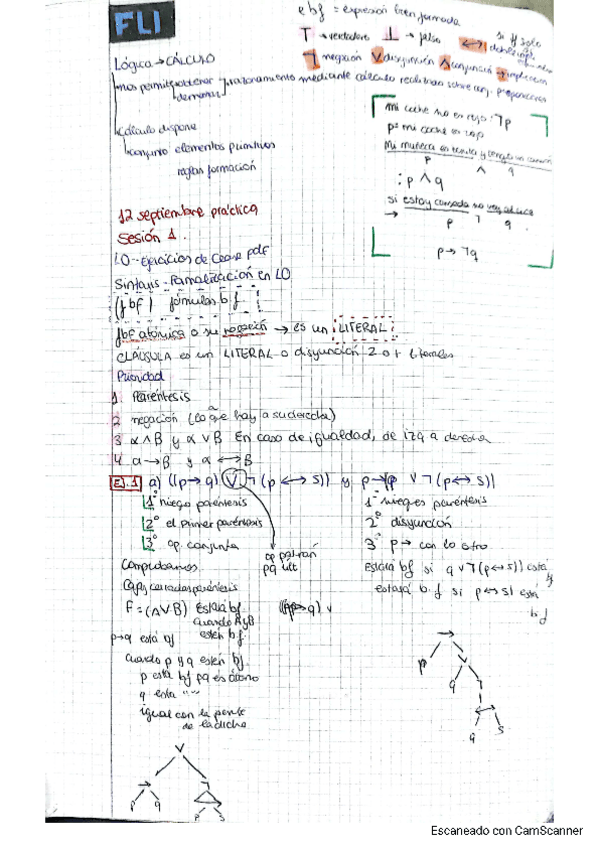 FLI
ebf = expresión bien formada
T → verdadero ⊥ → falso ↔ si y solo
¬ negación ∨ disyunción ∧ conjunción → implicación
Lógica → CÁLCULO
nos permite obtener razonamiento mediante cálculo
demostrar
cálculo dispone
conjunto elementos primitivos
reglas formación
mi coche no es rojo: ¬p
p = mi coche es rojo
Mi muñeca es bonita y tengo un camión
p ∧ q
: p ∧ q
si estoy cansada no voy
→ p ¬ q
p → ¬q
12 septiembre práctica
Sesión 1.
LO - Ejercicios de pdf
Sintaxis - Formalización en LO
(fbf) fórmulas bf
fbf atómica o su negación → es un LITERAL
CLÁUSULA es un LITERAL o disyunción 2 o + literales
Prioridad
1. Paréntesis
2 negación (lo que hay a su derecha)
3 α ∧ β y α ∨ β En caso de igualdad, de izq a derecha
4. α → β y α ↔ β
Ej. 1 a) ((p→q) ∨ ¬(p ↔ s)) y p→(p ∨ ¬(p↔s))
1º niego paréntesis
2º el primer paréntesis
3º op. conjunta
1º niegues paréntesis
2º disyunción
3º p → con lo otro
Comprobamos
Estará bf si q ∨ ¬(p↔s)) está bf
estará b.f si p ↔ s está b.f
F = (A∨B) Estará bf
cuando A y B
estén bf.
p→q está bf
cuando p y q estén bf
p está bf pq es átomo
q esta " "
igual con la parte
de la dicha
∨
→ ¬
p q ↔
p s
→
p ∨
q ¬
↔
q s
Escaneado con CamScanner